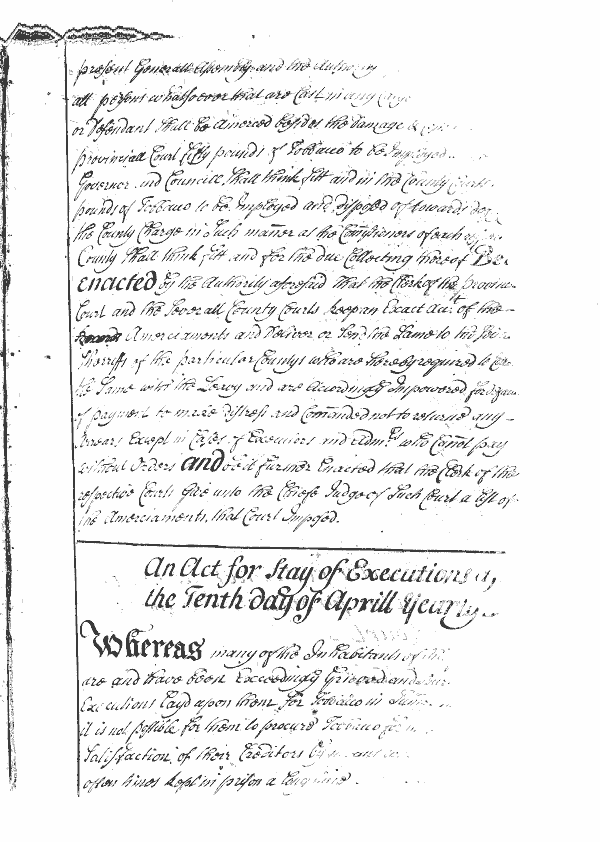 present Generall Assembly and the Authority
all persons whatsoever that are Cast in any
or Defendant Shall be Amerced besides the Damage &
provinciall Court fifty pounds of Tobbacco to be Imployed
Governor and Councill Shall think fitt and in the County Courts
pounds of Tobacco to be Imployed and disposed of towards
the County Charge in Such manner as the Comissioners of each
County Shall think fitt and for the due Collecting thereof Be
enacted by the Authority aforesaid that the Clerk of the
Court and the Severall County Courts keep an Exact Acct. of the
Amerciaments and Deliver or Send the Same to the
Sherriffs of the particular Countys who are thereby required to
the Same with the Leavy and are Accordingly Impowered for
of payment to make distress and Comanded not to returne any
Arrears Except in Cases of Executors and Admrs. who Cannot pay
without Orders and be it further Enacted that the Clerk of the
respective Courts Give unto the Chiefe Judge of Such Court a list of
the Amerciaments, that Court Imposed.
An Act for Stay of Executions
the Tenth day of Aprill Yearly
Whereas many of the Inhabitants of
are and have been Exceedingly Grieved and
Executions Layd upon them for Tobacco in
it is not possible for them to procure Tobacco for
Satisfaction of their Creditors by
often times kept in prison a Long time